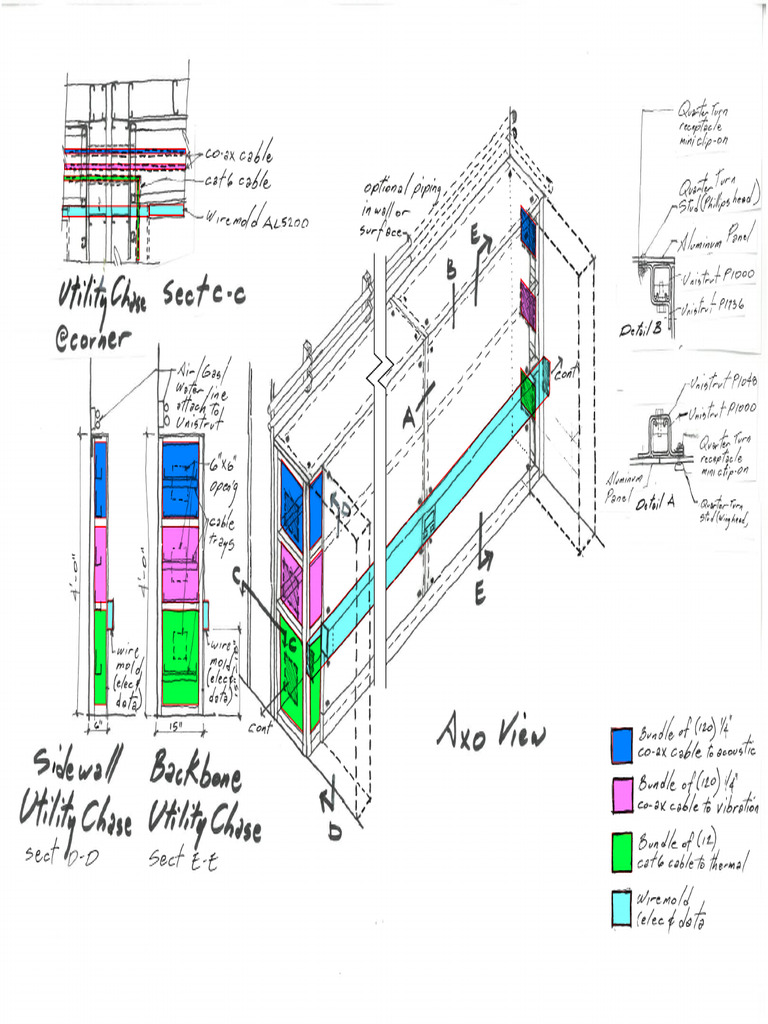 co-ax cable
cat6 cable
Wiremold AL5200
Utility Chase Sect C-C
@corner
optional piping
in wall or
surface
Quarter Turn
receptacle
mini clip-on
Quarter Turn
Stud (Phillips head)
Aluminum Panel
Unistrut P1000
Unistrut P1936
Detail B
Unistrut P1000
Quarter Turn
receptacle
mini clip-on
Aluminum
Panel
Detail A
Quarter Turn
Stud (Winghead)
Air/Gas/
Water line
attach to
Unistrut
6"x6"
open'g
cable
trays
4'-0"
4'-0"
wire
mold
(elec &
data)
wire
mold
(elec &
data)
6"
15"
Sidewall
Utility Chase
Sect D-D
Backbone
Utility Chase
Sect E-E
E
B
A
D
C
C
E
D
cont
cont
Axo View
Bundle of (120) 1/4"
co-ax cable to acoustic
Bundle of (120) 1/4"
co-ax cable to vibration
Bundle of (12)
cat6 cable to thermal
Wiremold
(elec & data